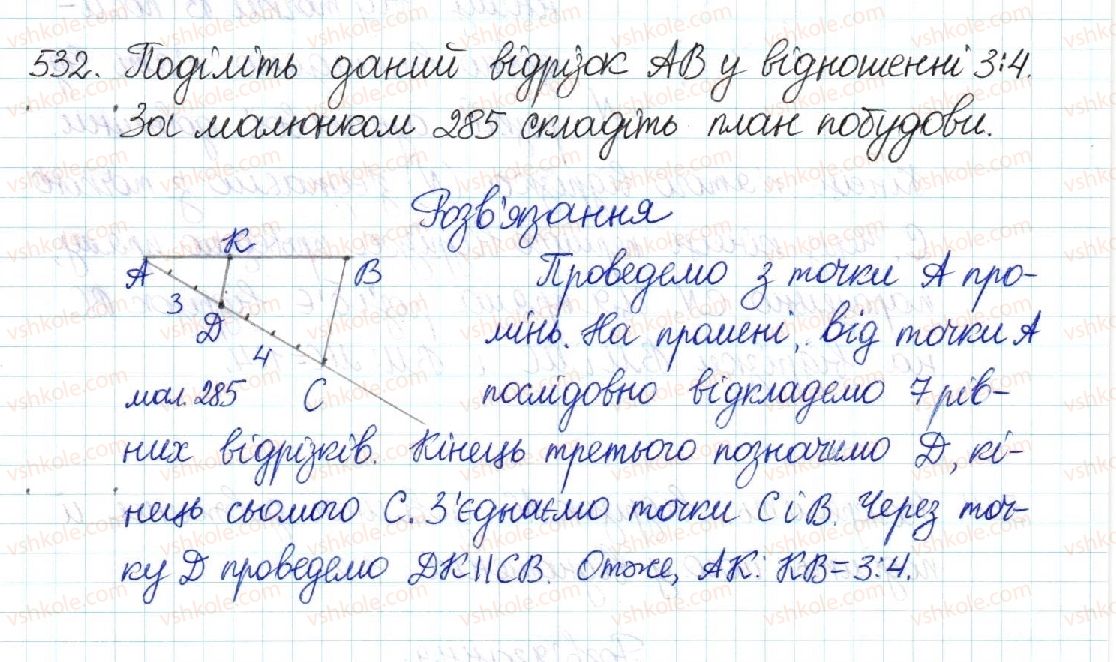 532. Поділіть даний відрізок АВ у відношенні 3:4.
За малюнком 285 складіть план побудови.
Розв'язання
К
А
В
3
D
4
С
мал. 285
Проведемо з точки А про-
мінь. На промені, від точки А
послідовно відкладемо 7 рів-
них відрізків. Кінець третього позначимо D, кі-
нець сьомого С. З'єднаємо точки С і В. Через точ-
ку D проведемо DK||CB. Отже, АК : КВ = 3:4.
vshkole.com